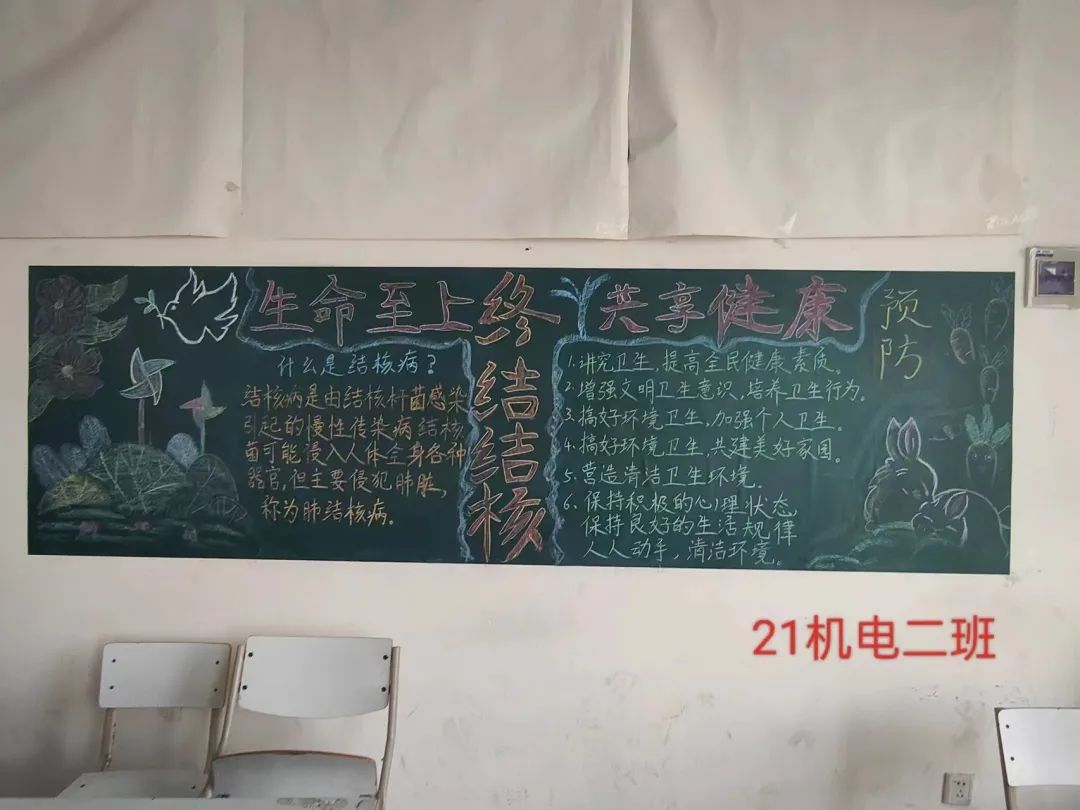 生命至上
终结结核
共享健康
预防
什么是结核病?
结核病是由结核杆菌感染
引起的慢性传染病结核
菌可能浸入人体全身各种
器官,但主要侵犯肺脏,
称为肺结核病。
1.讲究卫生,提高全民健康素质。
2.增强文明卫生意识,培养卫生行为。
3.搞好环境卫生,加强个人卫生。
4.搞好环境卫生,共建美好家园。
5.营造清洁卫生环境。
6.保持积极的心理状态
保持良好的生活规律
人人动手,清洁环境。
21机电二班